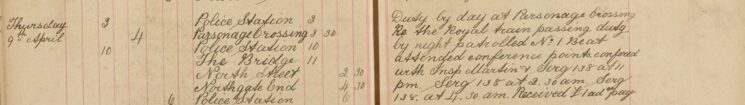 Police Station 3
Thursday 3 Parsonage Crossing 3 30
9th April 4
10 Police Station 10
The Bridge 11
North Street 2 30
Northgate End 4 30
6 Police Station 6
Duty by day at Parsonage Crossing
Re the Royal train passing duty
by night patrolled No 1 Beat
attended conference points conferred
with Insp Martin & Serg 138 at 11
pm. Serg 138 at 2.30 am. Serg
138. at 4.30 am. Received £1 adv pay